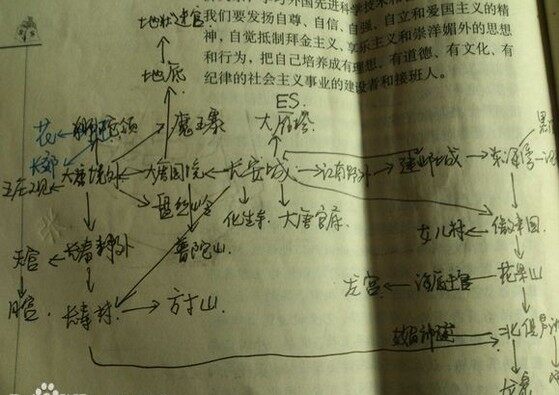 我们要发扬自尊、自信、自强、自立和爱国主义的精
神，自觉抵制拜金主义、享乐主义和崇洋媚外的思想
和行为，把自己培养成有理想、有道德、有文化、有
纪律的社会主义事业的建设者和接班人。
地狱迷宫
地府
ES
大雁塔
花
狮驼岭
魔王寨
大唐境外
大唐国境
长安城
江南野外
建邺城
东海湾
五庄观
盘丝岭
化生寺
大唐官府
女儿村
傲来国
长寿郊外
普陀山
天宫
月宫
长寿村
方寸山
龙宫
海底迷宫
花果山
北俱芦洲